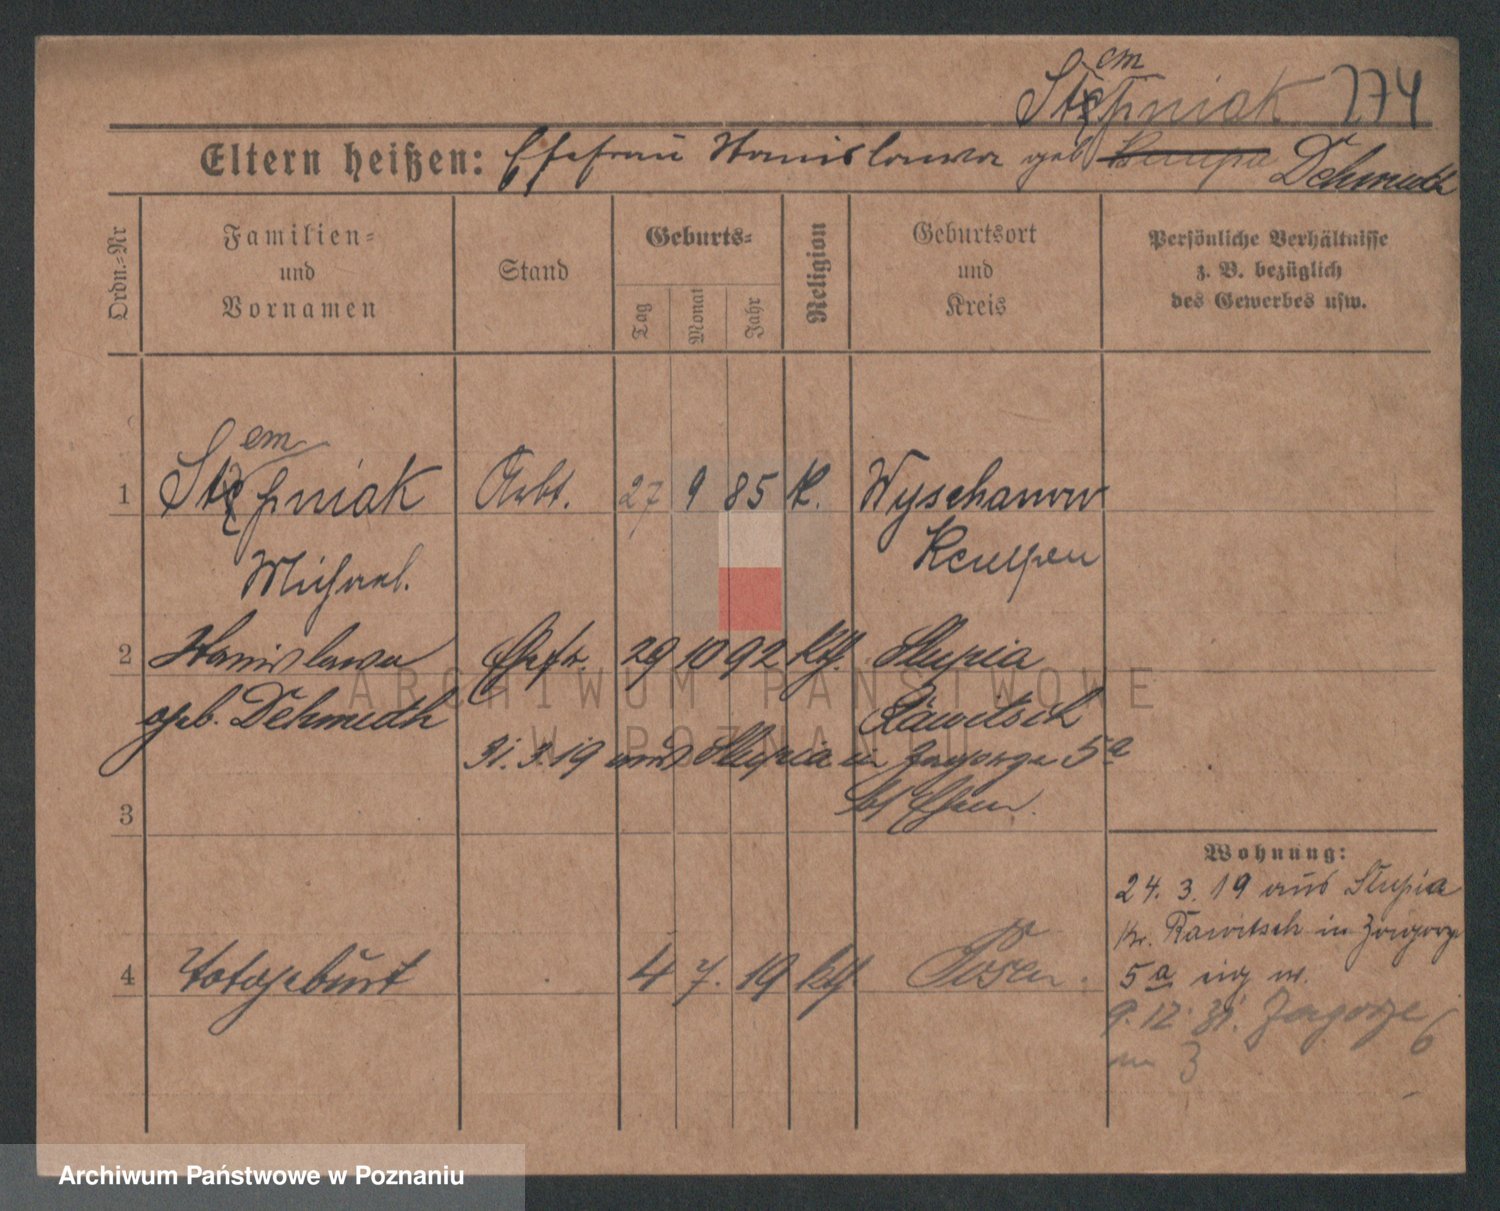 em
Stępniak 274
Eltern heißen: Ehefrau Stanislawa geb. Dehmeth
Ordn.=Nr
Familien=
und
Vornamen
Stand
Geburts=
Tag
Monat
Jahr
Religion
Geburtsort
und
Kreis
Persönliche Verhältnisse
z. B. bezüglich
des Gewerbes usw.
em
1 Stępniak Arbt. 27 9 85 K. Wyschanow
Michael. Kempen
2 Stanislawa Ehefr. 29 10 92 kth. Slupia
geb. Dehmeth Rawitsch
31. 3. 19 aus Slupia in Zagorze 5a
3
Wohnung:
24. 3. 19 aus Slupia
Kr. Rawitsch in Zagorze
4 Totgeburt 4 7. 19 kth Posen.
5a
9. 12. 31. Zagorze 6
3
ARCHIWUM PAŃSTWOWE
W POZNANIU
Archiwum Państwowe w Poznaniu